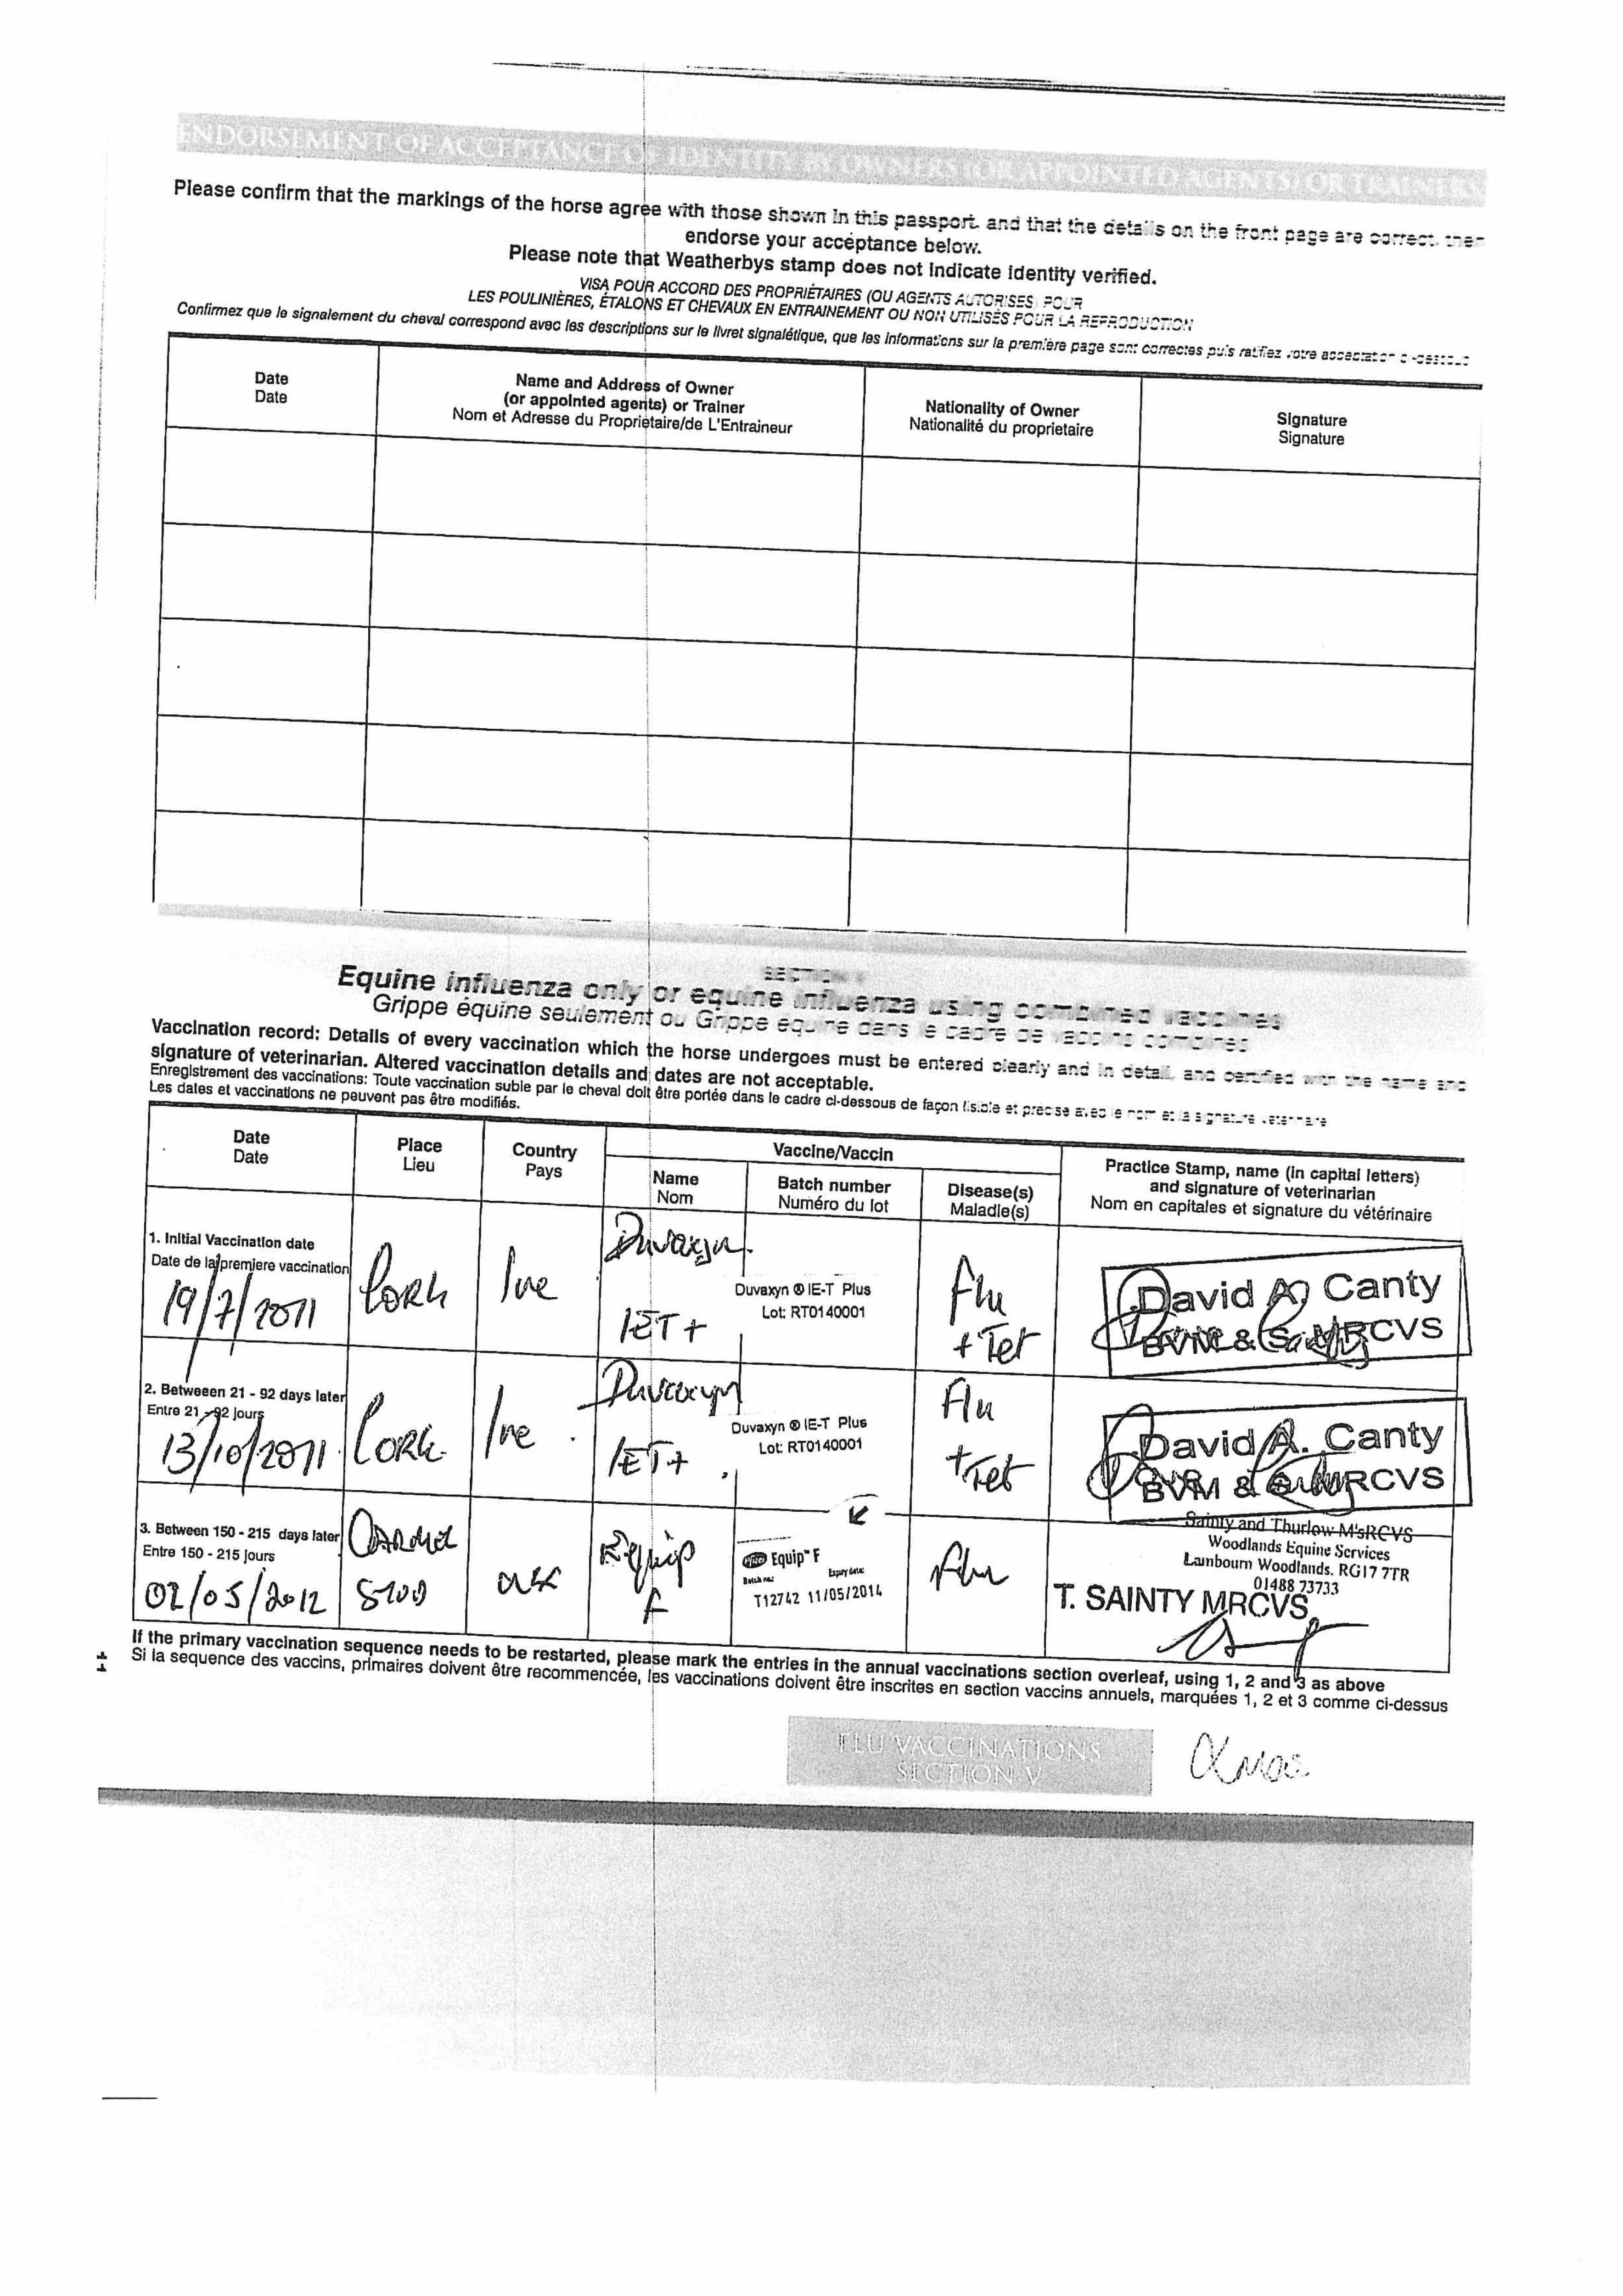 ENDORSEMENT OF ACCEPTANCE OF IDENTITY BY OWNERS (OR APPOINTED AGENTS) OR TRAINERS
Please confirm that the markings of the horse agree with those shown in this passport. and that the details on the front page are correct. then
endorse your acceptance below.
Please note that Weatherbys stamp does not indicate identity verified.
VISA POUR ACCORD DES PROPRIÉTAIRES (OU AGENTS AUTORISES) POUR
LES POULINIÈRES, ÉTALONS ET CHEVAUX EN ENTRAINEMENT OU NON UTILISÉS POUR LA REPRODUCTION
Confirmez que le signalement du cheval correspond avec les descriptions sur le livret signalétique, que les informations sur la première page sont correctes puis ratifiez votre acceptation ci-dessous
Date
Date
Name and Address of Owner
(or appointed agents) or Trainer
Nom et Adresse du Propriétaire/de L'Entraineur
Nationality of Owner
Nationalité du proprietaire
Signature
Signature
SECTION V
Equine influenza only or equine influenza using combined vaccines
Grippe équine seulement ou Grippe équine dans le cadre de vaccins combinés
Vaccination record: Details of every vaccination which the horse undergoes must be entered clearly and in detail, and certified with the name and
signature of veterinarian. Altered vaccination details and dates are not acceptable.
Enregistrement des vaccinations: Toute vaccination subie par le cheval doit être portée dans le cadre ci-dessous de façon lisible et precise avec le nom et la signature veterinaire
Les dates et vaccinations ne peuvent pas être modifiés.
Date
Date
Place
Lieu
Country
Pays
Vaccine/Vaccin
Name
Nom
Batch number
Numéro du lot
Disease(s)
Maladie(s)
Practice Stamp, name (in capital letters)
and signature of veterinarian
Nom en capitales et signature du vétérinaire
1. Initial Vaccination date
Date de la premiere vaccination
19/7/2011
Cork
Ire
Duvaxyn
IET+
Duvaxyn ® IE-T Plus
Lot: RT0140001
Flu
+ Tet
David A. Canty
BVM & S. MRCVS
2. Betweeen 21 - 92 days later
Entre 21 - 92 jours
13/10/2011
Cork
Ire
Duvaxyn
IET+
Duvaxyn ® IE-T Plus
Lot: RT0140001
Flu
+Tet
David A. Canty
BVM & S. MRCVS
3. Between 150 - 215 days later
Entre 150 - 215 jours
02/05/2012
Stud
UK
Equip
F
Equip™ F
Batch no.: Expiry date:
T12742 11/05/2014
Flu
Sainty and Thurlow M'sRCVS
Woodlands Equine Services
Lambourn Woodlands. RG17 7TR
01488 73733
T. SAINTY MRCVS
If the primary vaccination sequence needs to be restarted, please mark the entries in the annual vaccinations section overleaf, using 1, 2 and 3 as above
Si la sequence des vaccins, primaires doivent être recommencée, les vaccinations doivent être inscrites en section vaccins annuels, marquées 1, 2 et 3 comme ci-dessus
FLU VACCINATIONS
SECTION V